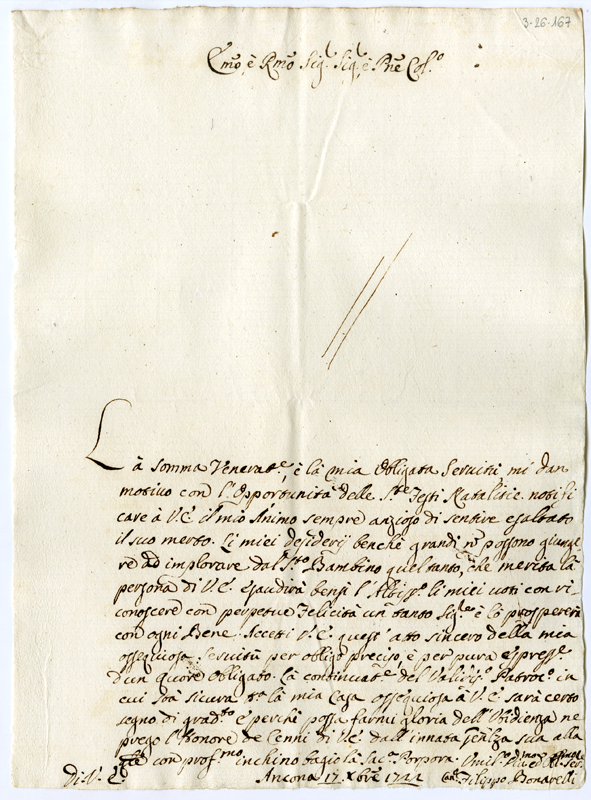 3·26·167
Emo, è Rmo Sig.r Sig.r è Pne Col.o
La somma Venerat.e, è là mia Obligata Servitù mi dan
motivo con l'Opportunità delle S.te Feste Natalitie notifi
care à V.E. il mio Animo sempre anzioso di sentire esaltato
il suo merto. Li miei desiderij benche grandi nõ possono giunge
re ad implorare dal S.to Bambino quel tanto, che merita là
persona di V.E. Esaudirà bensì l'Altiss.o li miei voti con ri
conoscere con perpetue Felicità un tanto Sig.re è lò prospererà
con ogni Bene. Accetti V.E. quest'atto sincero della mia
ossequiosa Servitù per obligo preciso, è per pura espress.e
d'un quore obligato. Là continuat.e del Patroc.o in
cui stà sicura tta là mia Casa ossequiosa à V.E. sarà certo
segno di grad.to è perche possa farmi gloria dell'Ubidienza ne
prego l'Honore de Cenni di V.E. dall'innata sua alla
con prof.mo inchino bagio là Sac.a Porpora.
Di V. E. Ancona 17 Xbre Filippo Bonarelli